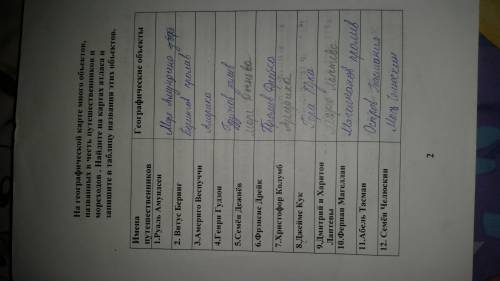 На географической карте много объектов,
названных в честь путешественников и
мореходов . Найдите на картах атласа и
запишите в таблицу названия этих объектов.
Имена путешественников	Географические объекты
1.Руаль Амундсен	Море Амундсена
2. Витус Беринг	Берингов пролив
3.Америго Веспуччи	Америка
4.Генри Гудзон	Гудзонов залив
5.Семён Дежнёв	мыс Дежнёва
6.Фрэнсис Дрейк	Пролив Дрейка
7.Христофор Колумб
8.Джеймс Кук	Гора Кука
9.Дмитрий и Харитон Лаптевы	Море Лаптевых
10.Фернан Магеллан	Магелланов пролив
11.Абель Тасман	Остров Тасмания
12. Семён Челюскин	Мыс Челюскин
2